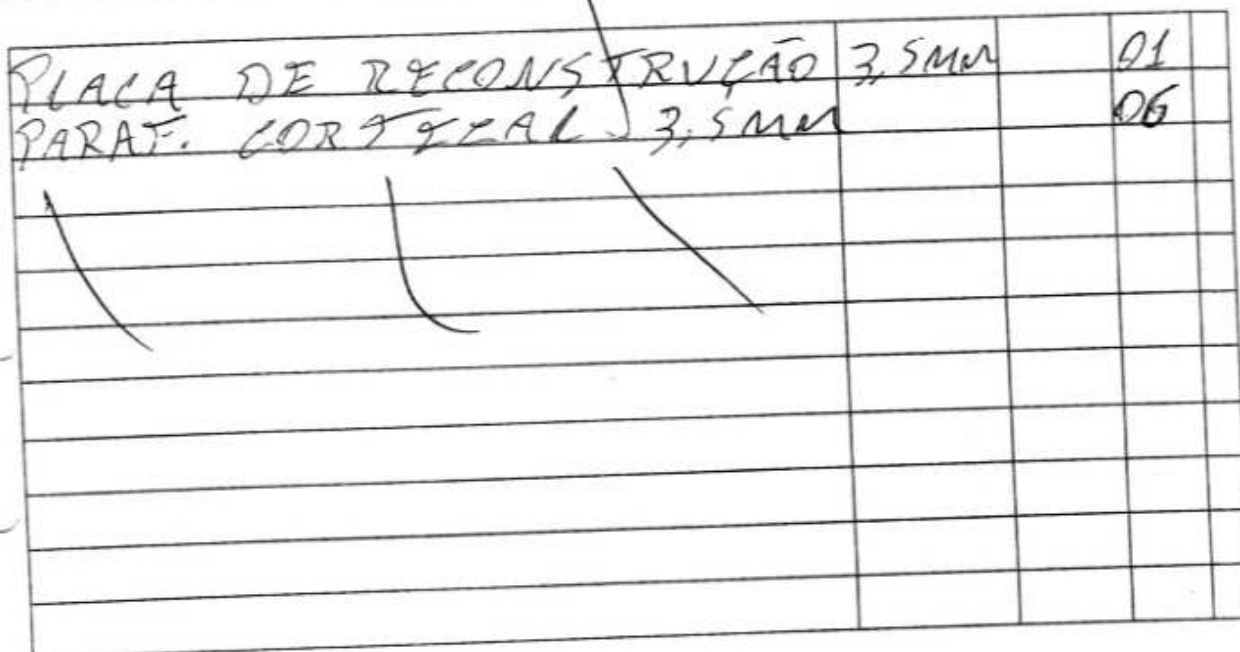 PLACA DE RECONSTRUÇÃO 3,5MM 01
PARAF. CORTICAL 3,5MM 06